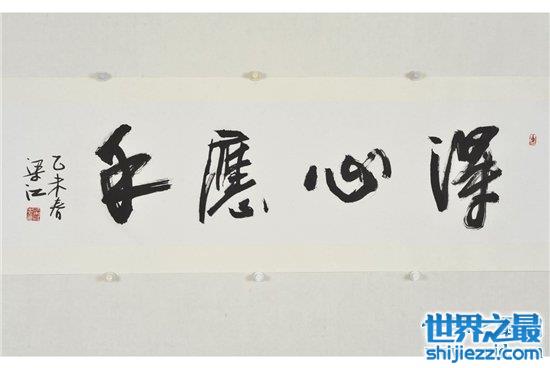 得心應手
乙未春
梁江
世界之最
shijiezzi.com